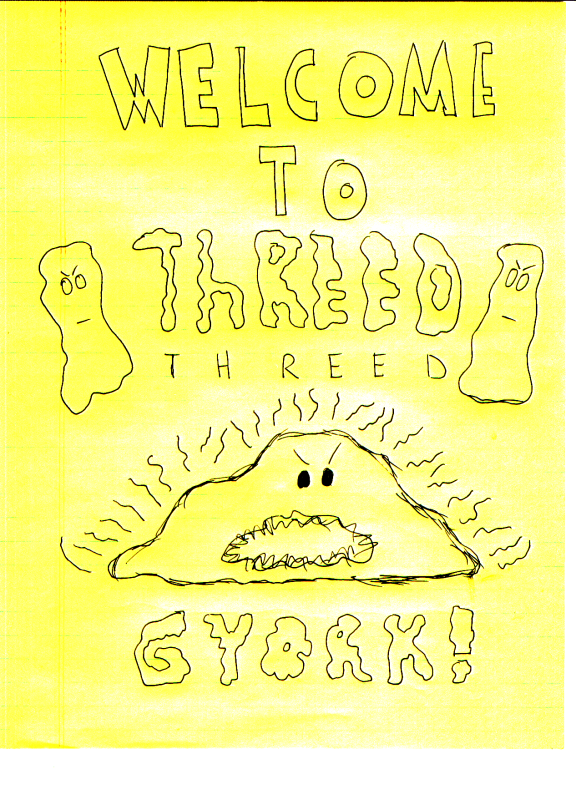 WELCOME
TO
THREED
THREED
GYORK!